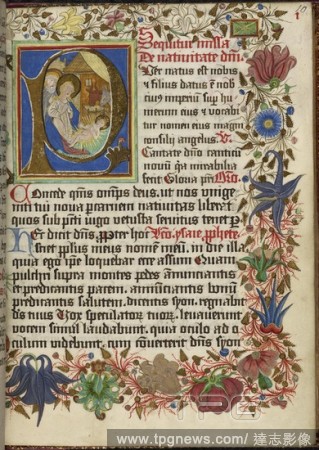 Sequitur missa
De natiuitate dm̄.
Puer natus est nobis
⁊ filius datus ē nob
cuiꝰ imperiū sup̱ hu
merum eius ⁊ vocabi
tur nomen eius magni
consilij angelus. v̄.
Cantate dn̄o canticū
nouū q̄a mirabilia
fecit Gloria pr̄i Or̄o.
Concede q̄s om̄ps deus. ut nos unige
niti tui noua p̱ carnem natiuitas liberet
quos sub pc̄ti iugo vetusta seruitus tenet p̱
Hec dicit dn̄s. p̱pter hoc Lc̄o. ysaie. p̱phete.
sciet pp̄lus meus nomen meū. in die illa
quia ego ip̄e qui loquebar ecce assum Quam
pulchri supra montes pedes annunciantis
et predicantis pacem. annunciantis bonū
predicantis salutem. dicentis syon. regnabit
ds̄ tuus Vox speculatorū tuorꝝ. leuauerunt
vocem simul laudabunt. quia oculo ad o
culum videbunt. cum cōuerterit dn̄s syon
TPG
www.tpgnews.com/ 達志影像